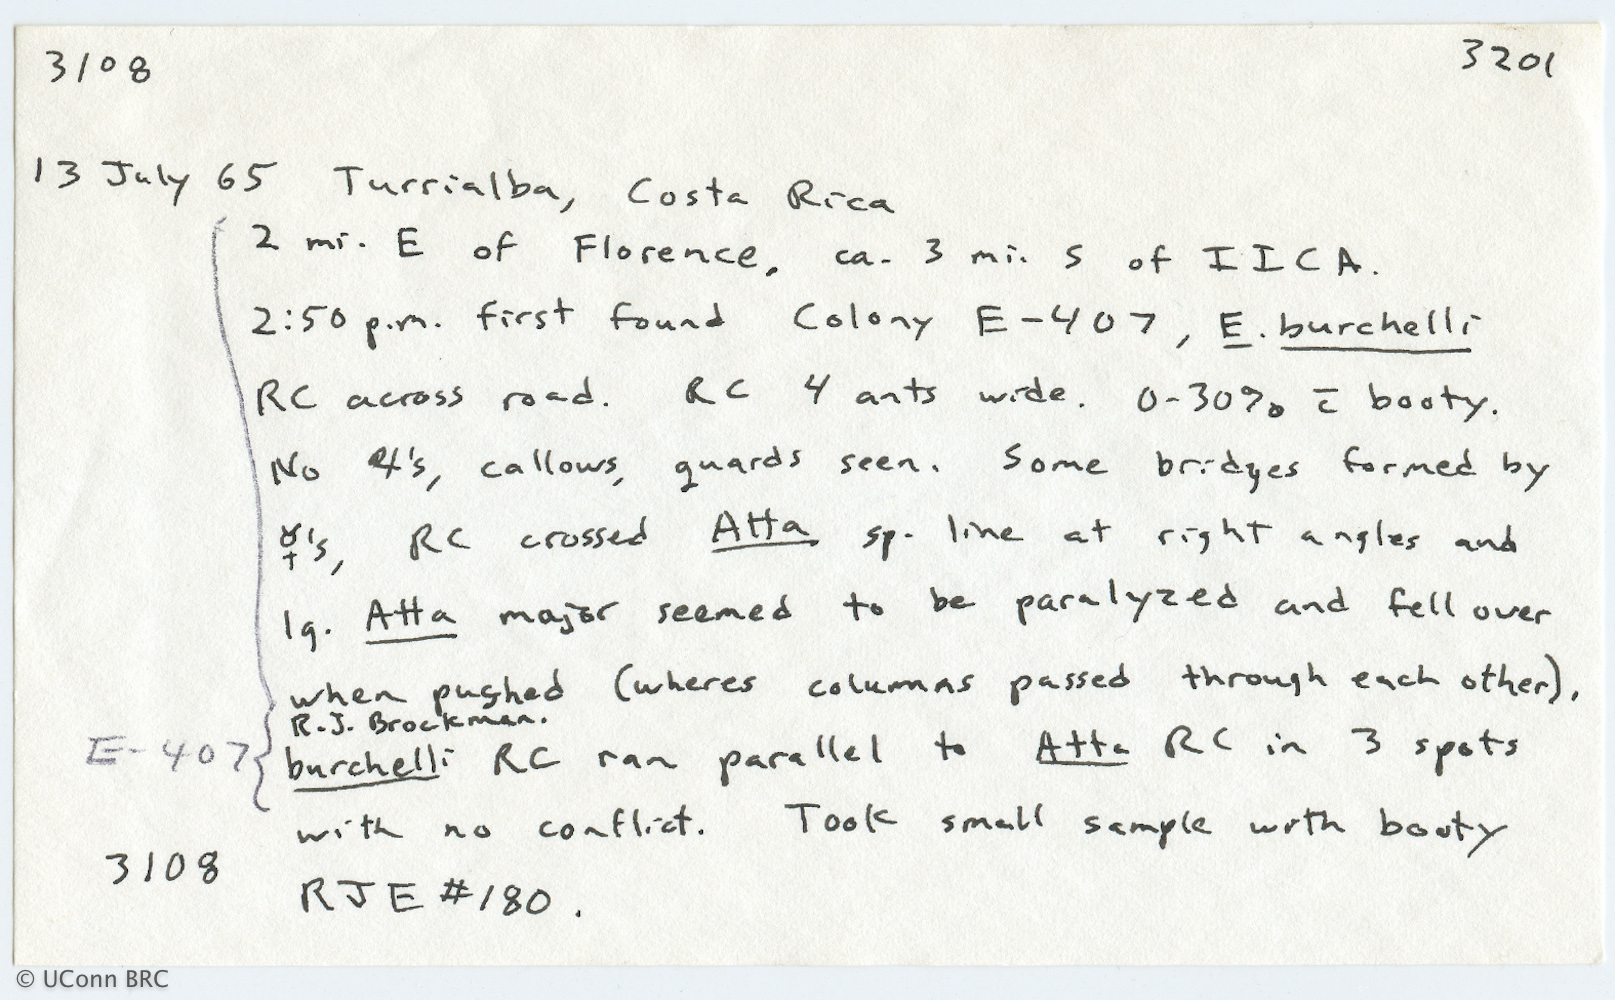 3108 3201
13 July 65 Turrialba, Costa Rica
2 mi. E of Florence, ca. 3 mi. S of IICA.
2:50 p.m. first found Colony E-407, E. burchelli
RC across road. RC 4 ants wide. 0-30% c̄ booty.
No 4's, callows, guards seen. Some bridges formed by
☿'s, RC crossed Atta sp. line at right angles and
lg. Atta major seemed to be paralyzed and fell over
when pushed (wheres columns passed through each other).
R.J. Brockman.
E-407 burchelli RC ran parallel to Atta RC in 3 spots
with no conflict. Took small sample with booty
3108
RJE #180.
© UConn BRC